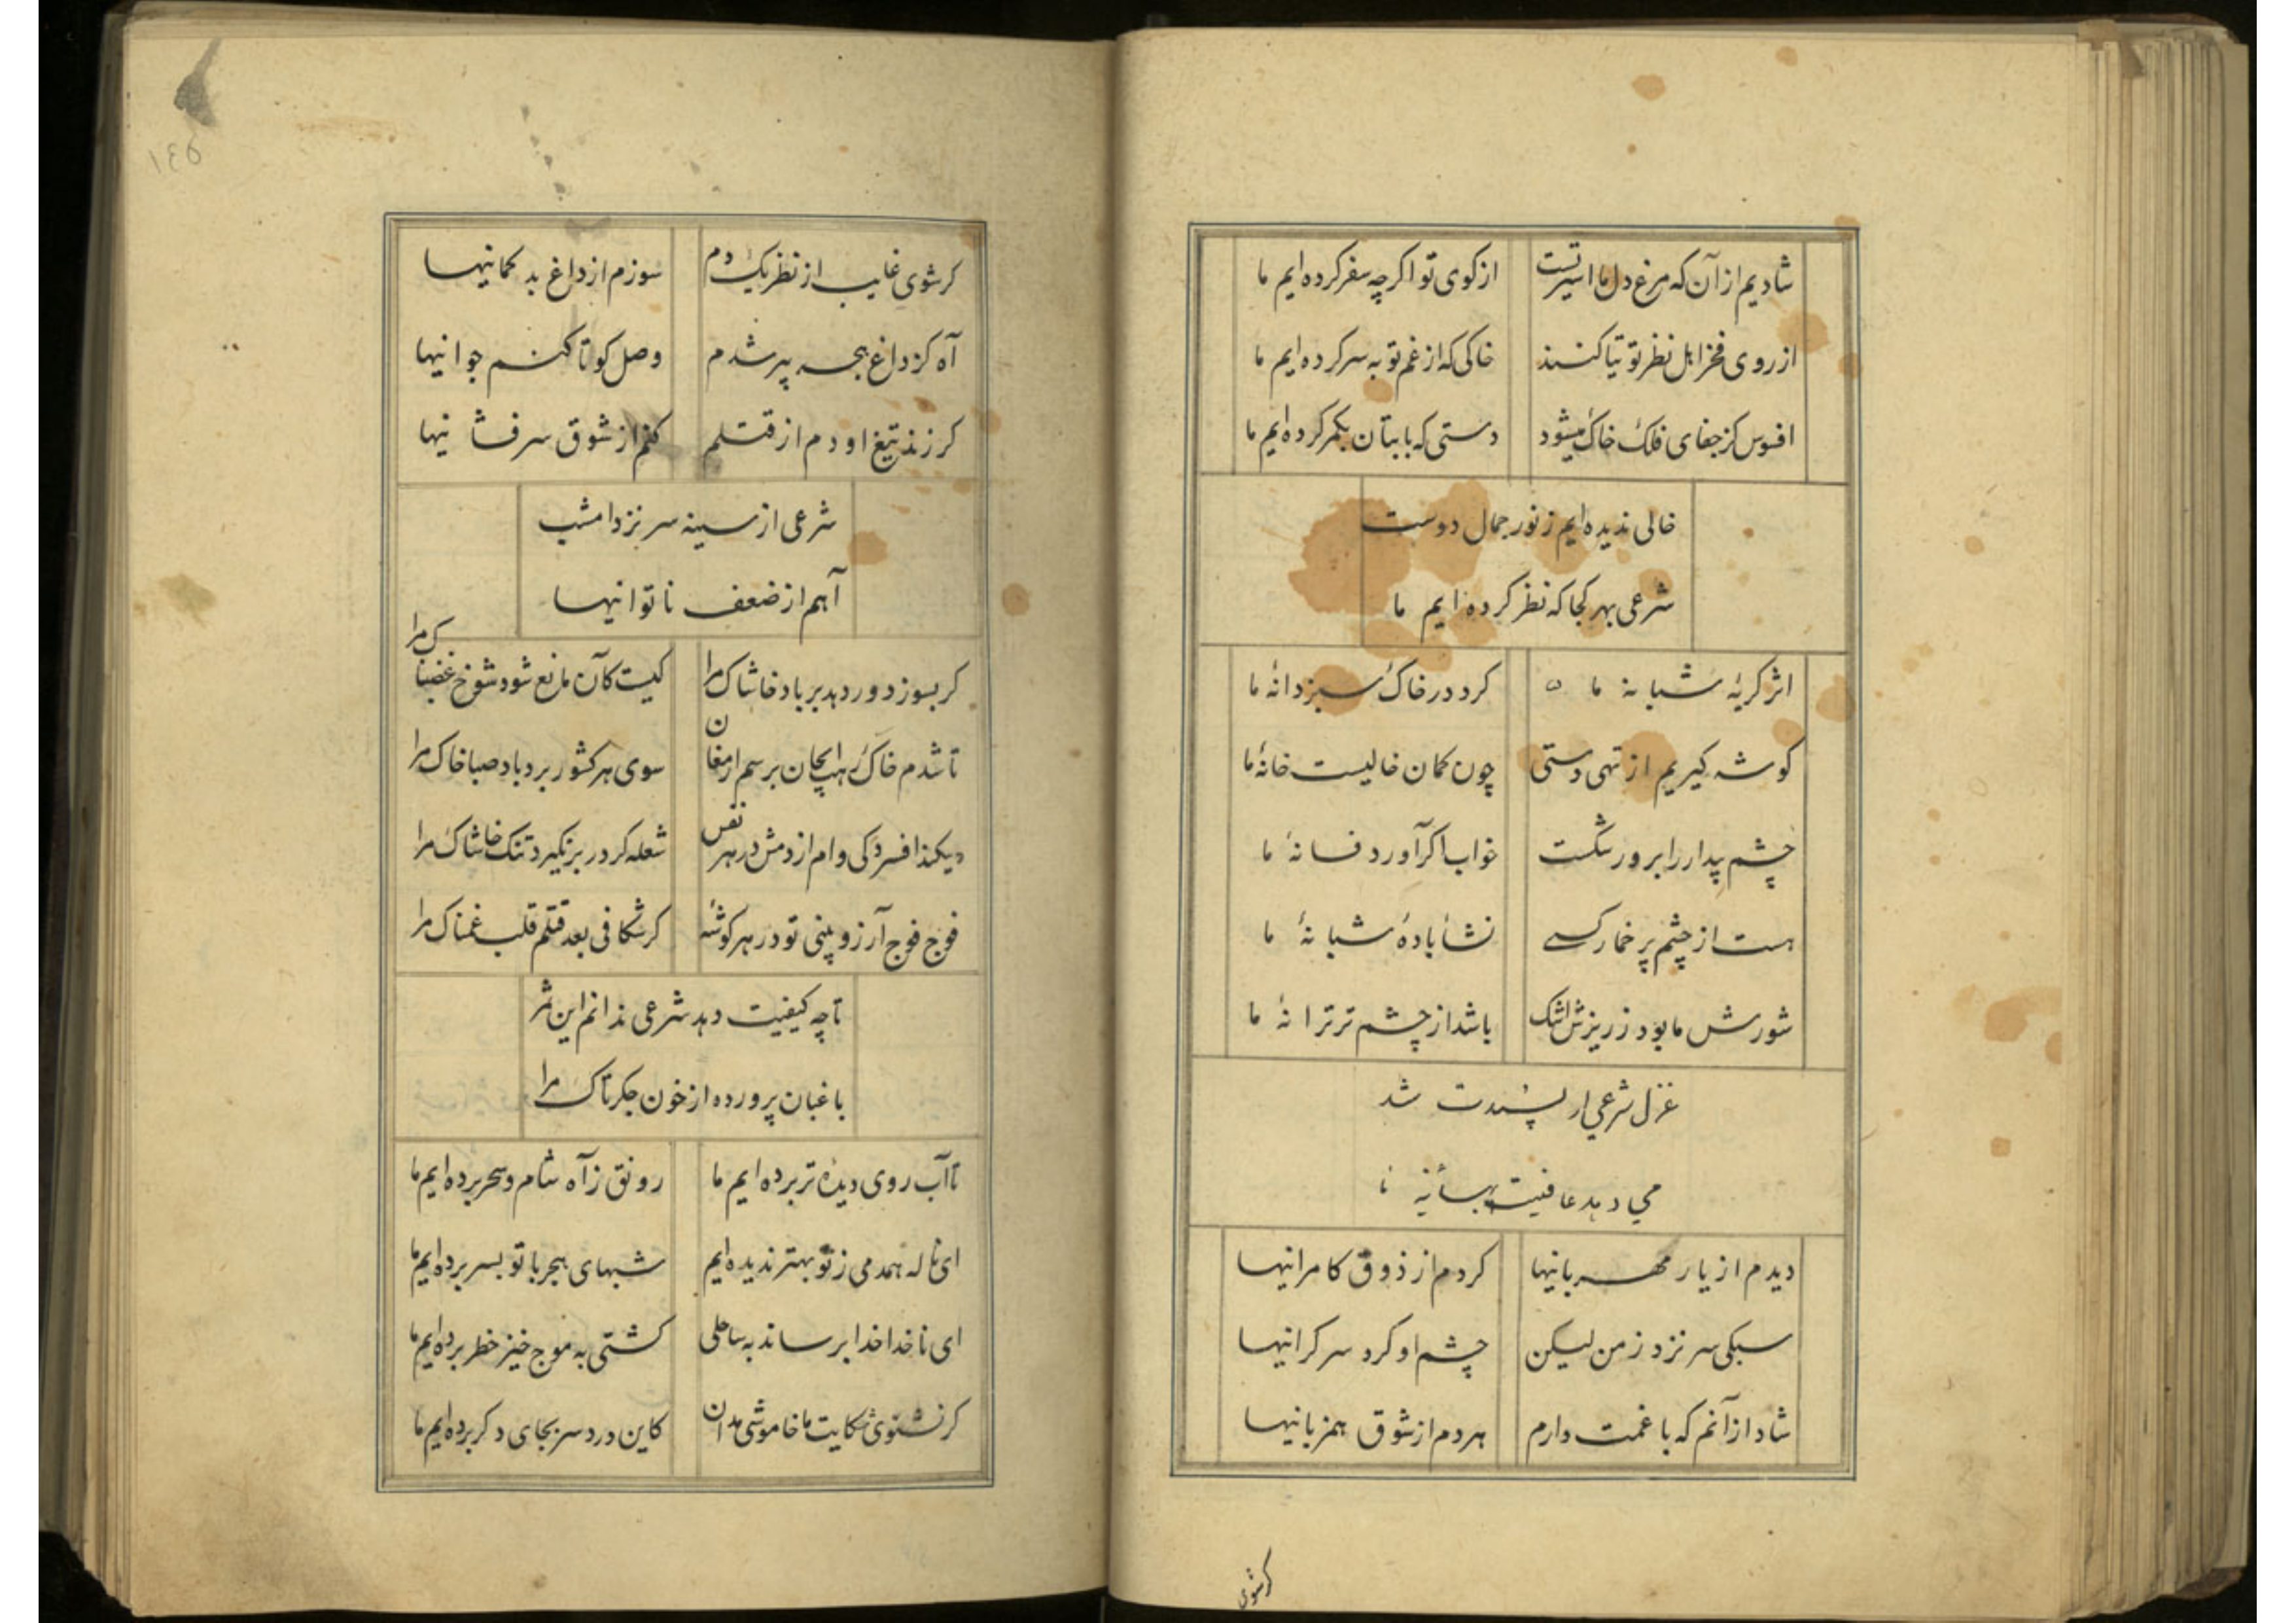 شادیم از آن که مرغ دل ما اسیر تست از کوی تو اکر چه سفر کرده ایم ما
از روی فخر اهل نظر توتیا کنند خاکی که از غم تو به سر کرده ایم ما
افسوس کز جفای فلک خاک میشود دستی که با بتان بکمر کرده ایم ما
خالی ندیده ایم ز نور جمال دوست
شرعی بهر کجا که نظر کرده ایم ما
اثر کریهٔ شبانهٔ ما کرد در خاک سبز دانهٔ ما
کوشه کیریم از تهی دستی چون کمان خالیست خانهٔ ما
چشم بیدار را برور شکست خواب اکر آورد فسانهٔ ما
هست از چشم پر خمار کسی نشأ بادهٔ شبانهٔ ما
شورش ما بود ز ریزش اشک باشد از چشم تر ترانهٔ ما
غزل شرعی ار پسندت شد
می دهد عافیت بهانهٔ ما
دیدم از یار مهربانیها کردم از ذوق کامرانیها
سبکی سر نزد ز من لیکن چشم او کرد سر کرانیها
شاد از آنم که با غمت دارم هر دم از شوق همزبانیها
کرشوی
١٤٥
کرشوی غایب از نظر یک دم سوزم از داغ بد کمانیها
آه کز داغ هجر پیر شدم وصل کو تا کنم جوانیها
کر زند تیغ او دم از قتلم کنم از شوق سرفشانیها
شرعی از سینه سر نزد امشب
آهم از ضعف ناتوانیها
کر بسوزد ور دهد بر باد خاشاک مرا کیست کآن مانع شود شوخ غضبناک مرا
تا شدم خاک رهب ایجان برسم ارمغان سوی هر کشور برد باد صبا خاک مرا
میکند افسردکی وام از دمش در هر نفس شعله کر در بر نکیرد تنک خاشاک مرا
فوج فوج آرزو بینی تو در هر کوشهٔ کر شکافی بعد قتلم قلب غمناک مرا
تا چه کیفیت دهد شرعی ندانم این ثمر
باغبان پرورده از خون جکر تاک مرا
تا آب روی دیدهٔ تر برده ایم ما رونق ز آه شام و سحر برده ایم ما
ای ناله همدمی ز تو بهتر ندیده ایم شبهای هجر با تو بسر برده ایم ما
ای ناخدا خدا برساند به ساحلی کشتی به موج خیز خطر برده ایم ما
کر نشنوی شکایت ما خاموشی مدان کاین درد سر بجای دکر برده ایم ما